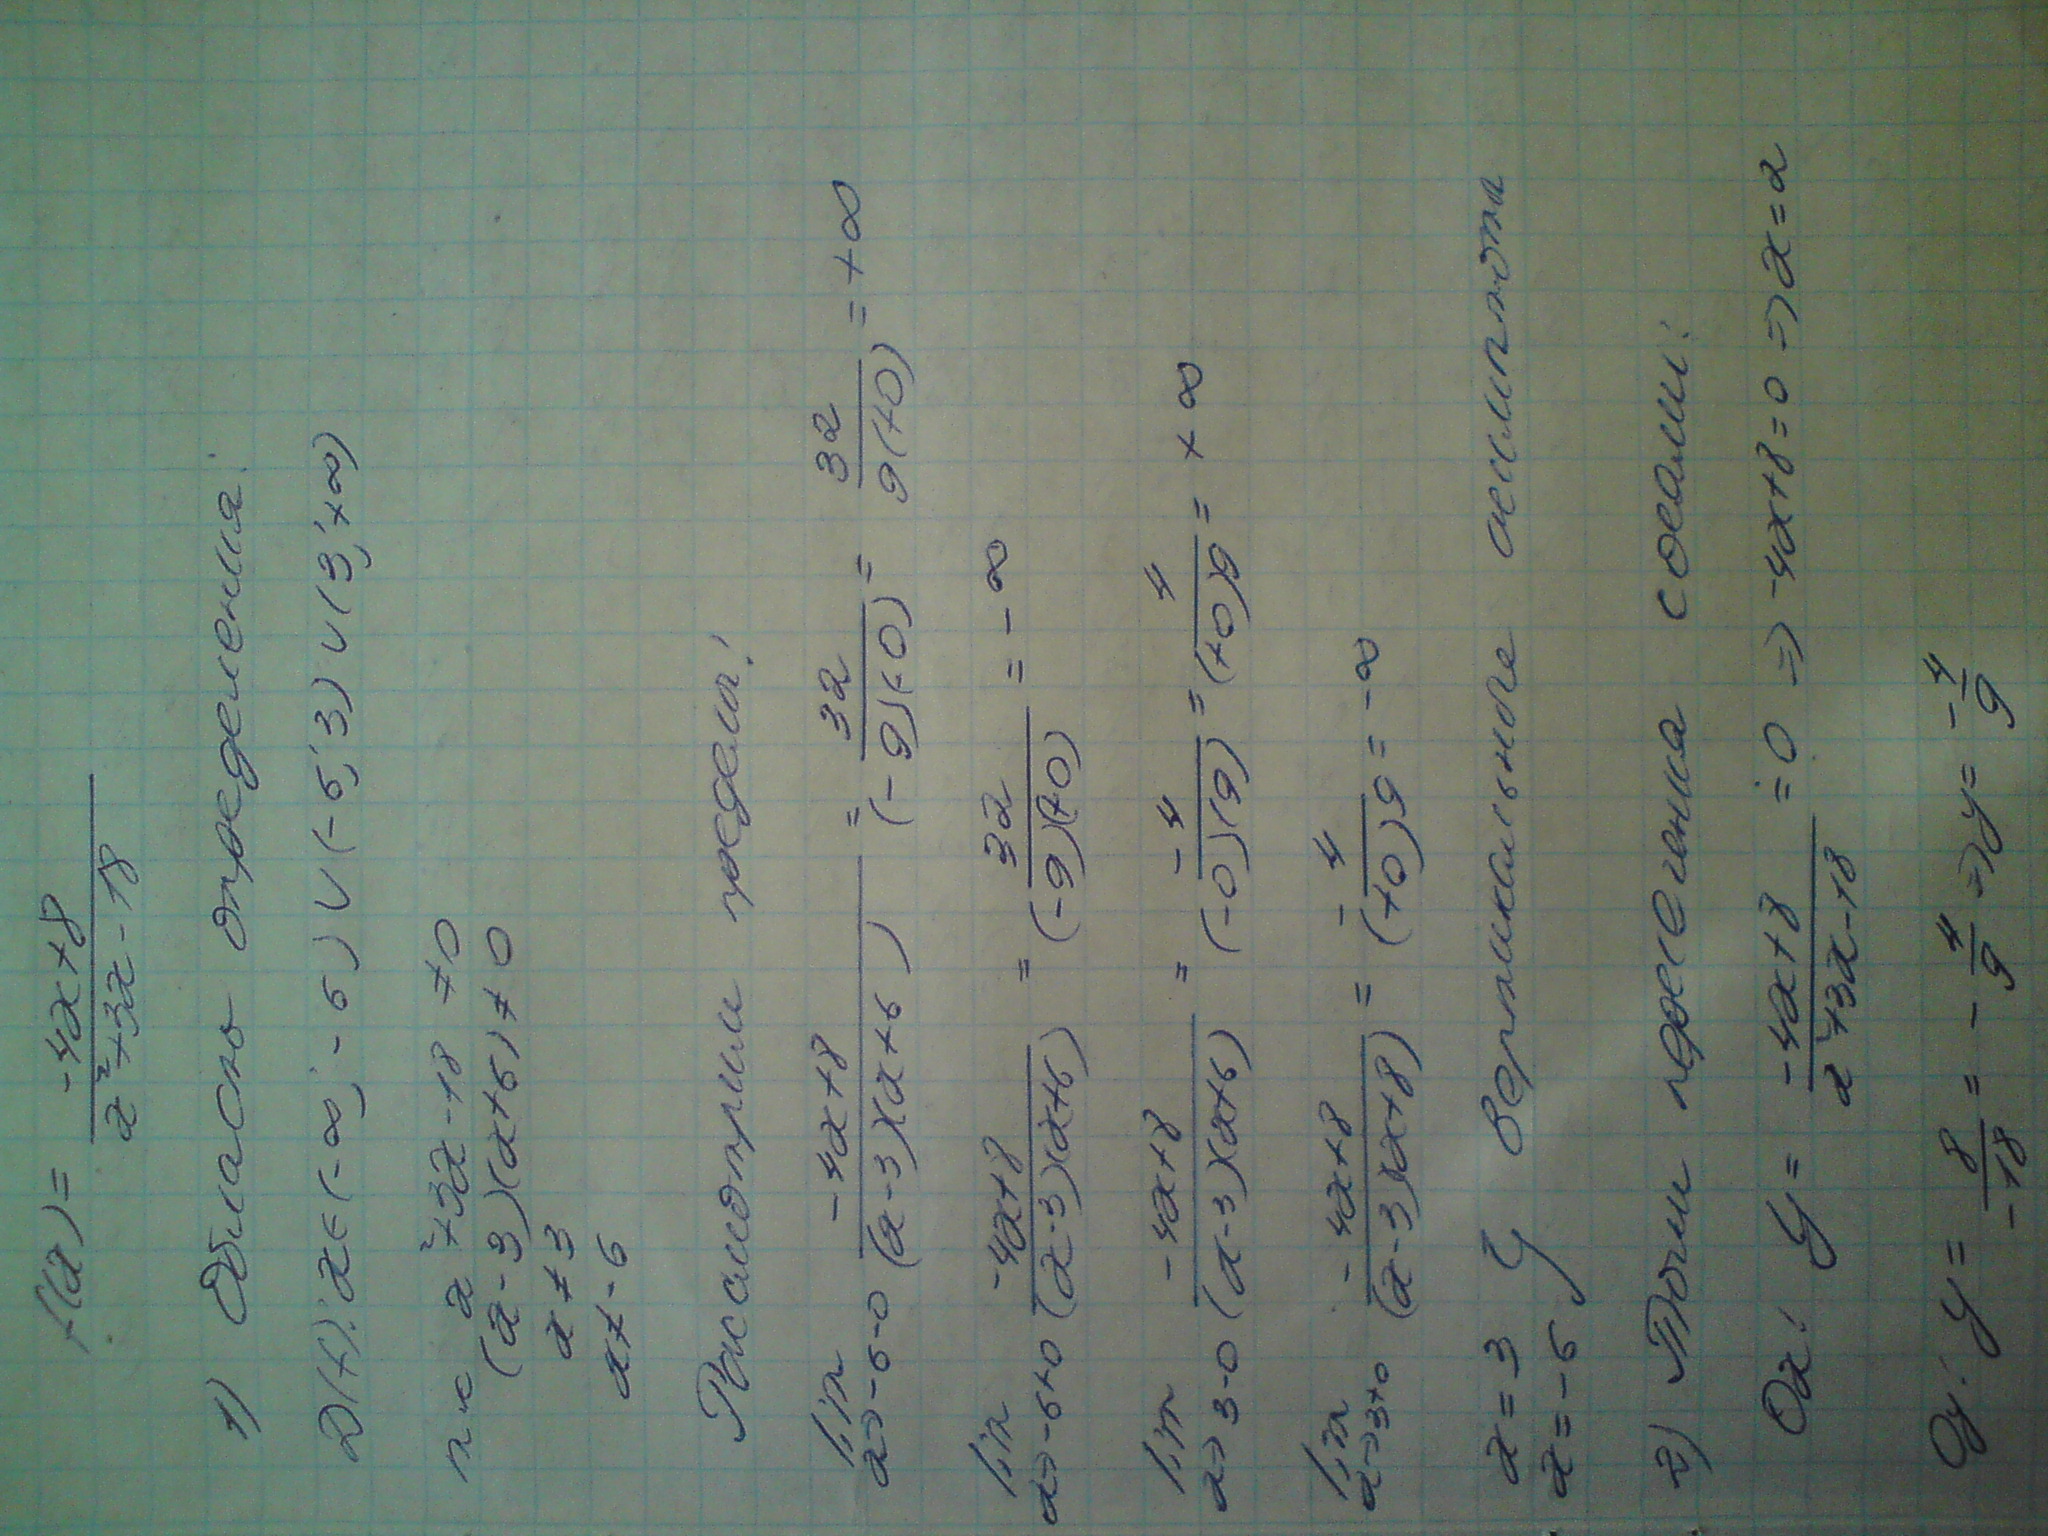 f(x) = (-4x+8)/(x²+3x-18)
1) Область определения:
D(f): x∈(-∞; -6) ∪ (-6; 3) ∪ (3; +∞)
т.к x²+3x-18 ≠0
(x-3)(x+6)≠0
x≠3
x≠-6
Рассмотрим пределы:
lim x→-6-0 (-4x+8)/((x-3)(x+6)) = 32/((-9)(-0)) = 32/(9(+0)) = +∞
lim x→-6+0 (-4x+8)/((x-3)(x+6)) = 32/((-9)(+0)) = -∞
lim x→3-0 (-4x+8)/((x-3)(x+6)) = -4/((-0)(9)) = 4/((+0)9) = +∞
lim x→3+0 (-4x+8)/((x-3)(x+8)) = -4/((+0)9) = -∞
x=3
x=-6 } вертикальные асимптоты
2) Точки пересечения с осями:
Ox: y = (-4x+8)/(x²+3x-18) = 0 ⇒ -4x+8=0 ⇒ x=2
Oy: y = 8/-18 = -4/9 ⇒ y = -4/9